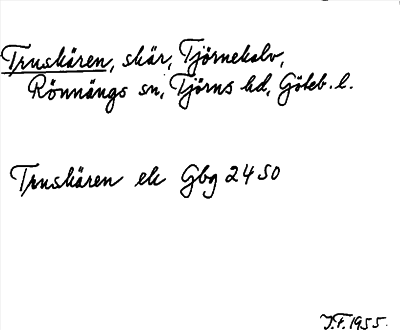 Truskären, skär, Tjörnekalv,
Rönnängs sn, Tjörns hd, Göteb. l.
Truskären ek Gbg 2450
J.F. 1955.